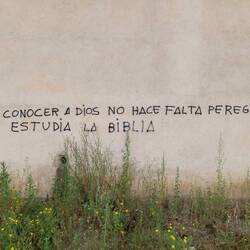 CONOCER A DIOS NO HACE FALTA PEREG
ESTUDIA LA BIBLIA